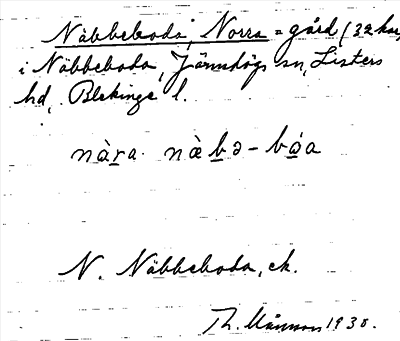 Näbbeboda, Norra = gård (32 ha,
i Näbbeboda, Jämshögs sn, Listers
hd, Blekinge l.
nàra nàbə-bóa
N. Näbbeboda, ek.
Th. 1930.